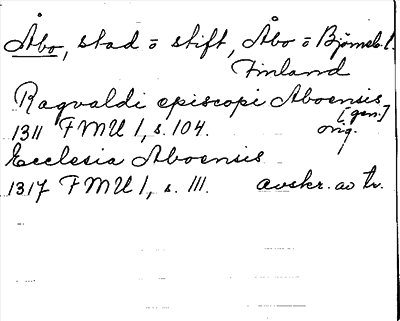 Åbo, stad o stift, Åbo o Björneb. l.
Finland
Ragvaldi episcopi Aboensis
[gen.]
1311 FMU 1, s. 104. orig.
Ecclesia Aboensis
1317 FMU 1, s. 111. avskr. av tr.